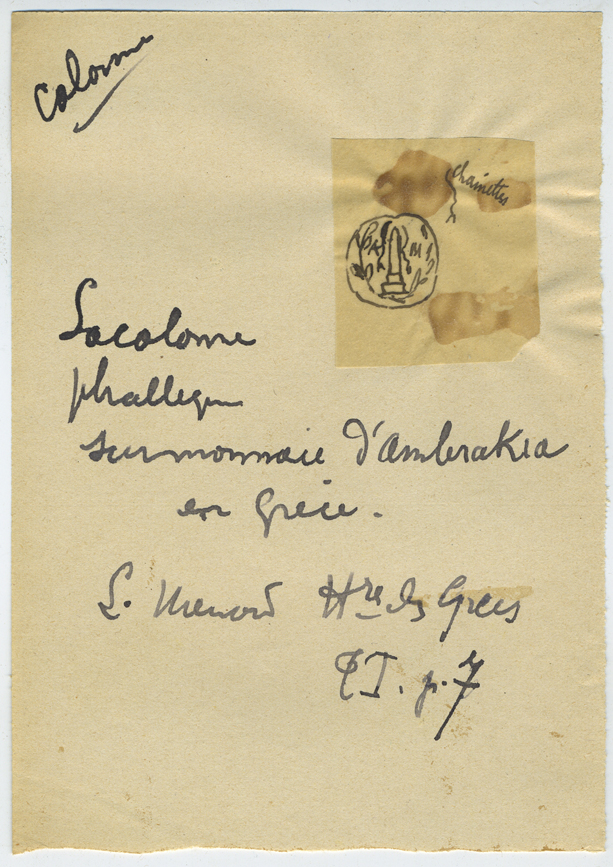 Colonne
chainettes
La colonne
phallique
sur monnaie d'Ambrakia
en Grèce.
L. Menard Hre des Grecs
T I. p. 7